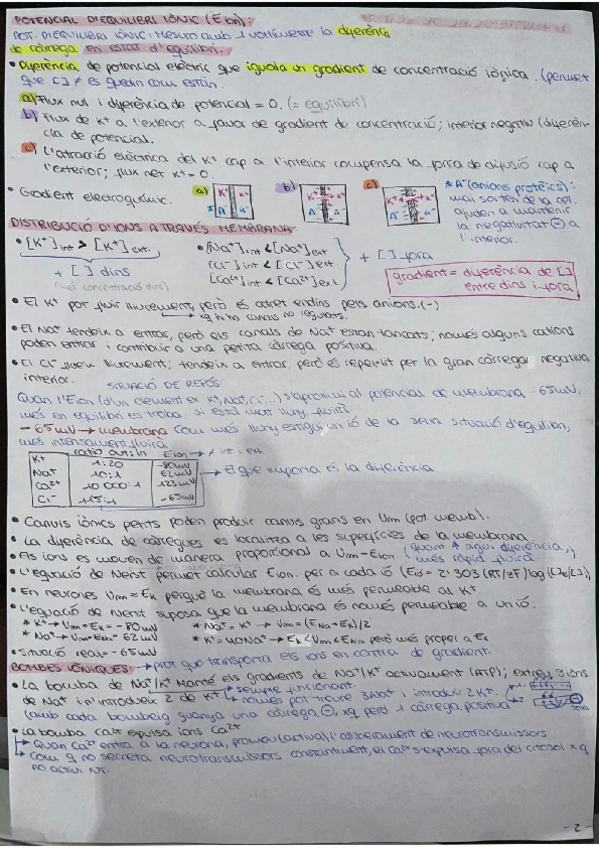 POTENCIAL D'EQUILIBRI IÒNIC (E ion):
POT. D'EQUILIBRI IÒNIC: Mesura amb 1 voltímetre la diferència
de càrrega en estat d'equilibri.
• Diferència de potencial elèctric que iguala un gradient de concentració iònica. (permet
que [] ≠ es quedin com estan.
a) Flux nul i diferència de potencial = 0. (= equilibri)
b) Flux de K+ a l'exterior a favor de gradient de concentració; interior negatiu (diferèn-
cia de potencial.
c) L'atracció elèctrica del K+ cap a l'interior compensa la força de difusió cap a
l'exterior; flux net K+ = 0.
• Gradient electroquímic.
a)
b)
c)
* A- (anions proteics):
mai sorten de la cèl.
ajuden a mantenir
la negativitat ⊖ a
l'interior.
DISTRIBUCIÓ D'IONS A TRAVÉS MEMBRANA:
• [K+] int > [K+] ext.
+ [ ] dins
(més concentració dins)
• [Na+] int < [Na+] ext
[Cl-] int < [Cl-] ext
[Ca2+] int < [Ca2+] ext
+ [ ] fora
gradient = diferència de []
entre dins i fora
• El K+ pot fluir lliurement, però és atret endins pels anions. (-)
hi ha canals no regulats.
• El Na+ tendeix a entrar, però els canals de Na+ estan tancats; només alguns cations
poden entrar i contribuir a una petita càrrega positiva.
• El Cl- flueix lliurement; tendeix a entrar, però és repel·lit per la gran càrrega negativa
interior.
SITUACIÓ DE REPÒS:
Quan l'Eion (d'un element ex K+, Na+, Cl-...) s'aproximi al potencial de membrana -65mV,
més en equilibri es troba. si està molt lluny, fluirà
-65mV → membrana Com més lluny estigui un ió de la seva situació d'equilibri,
més intensament fluirà
ratio out:in Eion → ≠ int i ext.
K+ 1:20 -80mV
Na+ 10:1 62mV
Ca2+ 10 000:1 123mV
Cl- 11'5:1 -65mV
→ El que importa és la diferència
• Canvis iònics petits poden produir canvis grans en Vm (pot. memb.).
• La diferència de càrregues es localitza a les superfícies de la membrana.
• Els ions es mouen de manera proporcional a Vm - Eion (quant ↑ sigui diferència,
més ràpid fluirà)
• L'equació de Nerst permet calcular Eion. per a cada ió (Eió = 2'303 (RT/zF) log([]e/[]i)
• En neurones Vm ≈ Ek perquè la membrana és més permeable al K+.
• L'equació de Nerst suposa que la membrana és només permeable a un ió:
* K+ → Vm = Ek = -80mV
* Na+ → Vm = ENa = 62mV
* Na+ = K+ → Vm = (ENa + Ek)/2
* K+ = 40Na+ → Ek < Vm < ENa però més proper a Ek
• Situació real = -65mV
BOMBES IÒNIQUES: → prot que transporta els ions en contra de gradient.
• La bomba de Na+/K+ manté els gradients de Na+/K+ activament (ATP); extreu 3 ions
de Na+ i n'introdueix 2 de K+
→ sempre funcionant.
→ només pot treure 3Na+ i introduir 2K+.
(amb cada bombeig guanya una càrrega ⊖, xq perd 1 càrrega positiva
• La bomba Ca2+ expulsa ions Ca2+
→ Quan Ca2+ entra a la neurona, promou (activa) l'alliberament de neurotransmissors.
→ Com q no secreta neurotransmissors constantment, el Ca2+ s'expulsa fora del citosol x q
no activi NT.
-2-